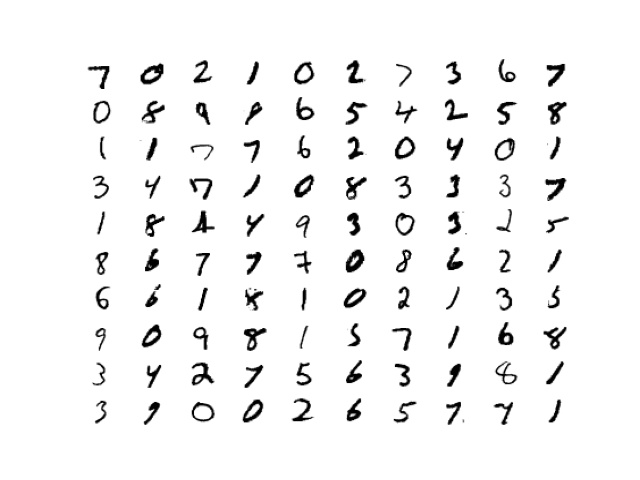 7 0 2 1 0 2 7 3 6 7
0 8 9 9 6 5 4 2 5 8
1 1 7 7 6 2 0 4 0 1
3 4 7 1 0 8 3 3 3 7
1 8 4 4 9 3 0 3 2 5
8 6 7 7 7 0 8 6 2 1
6 6 1 8 1 0 2 1 3 5
9 0 9 8 1 5 7 1 6 8
3 4 2 7 5 6 3 9 8 1
3 9 0 0 2 6 5 7 7 1